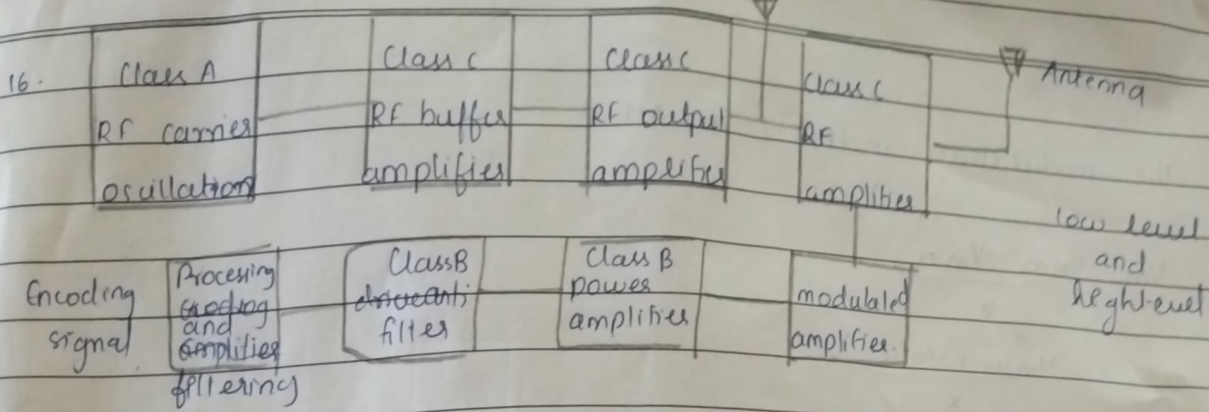 16.
Class A
RF carrier
oscillation
Class C
RF buffer
amplifier
Class C
RF output
amplifier
Class C
RF
amplifier
Antenna
low level
and
heghlevel
Encoding
signal
Processing
and
amplifier
filtering
Class B
filter
Class B
power
amplifier
modulated
amplifier.